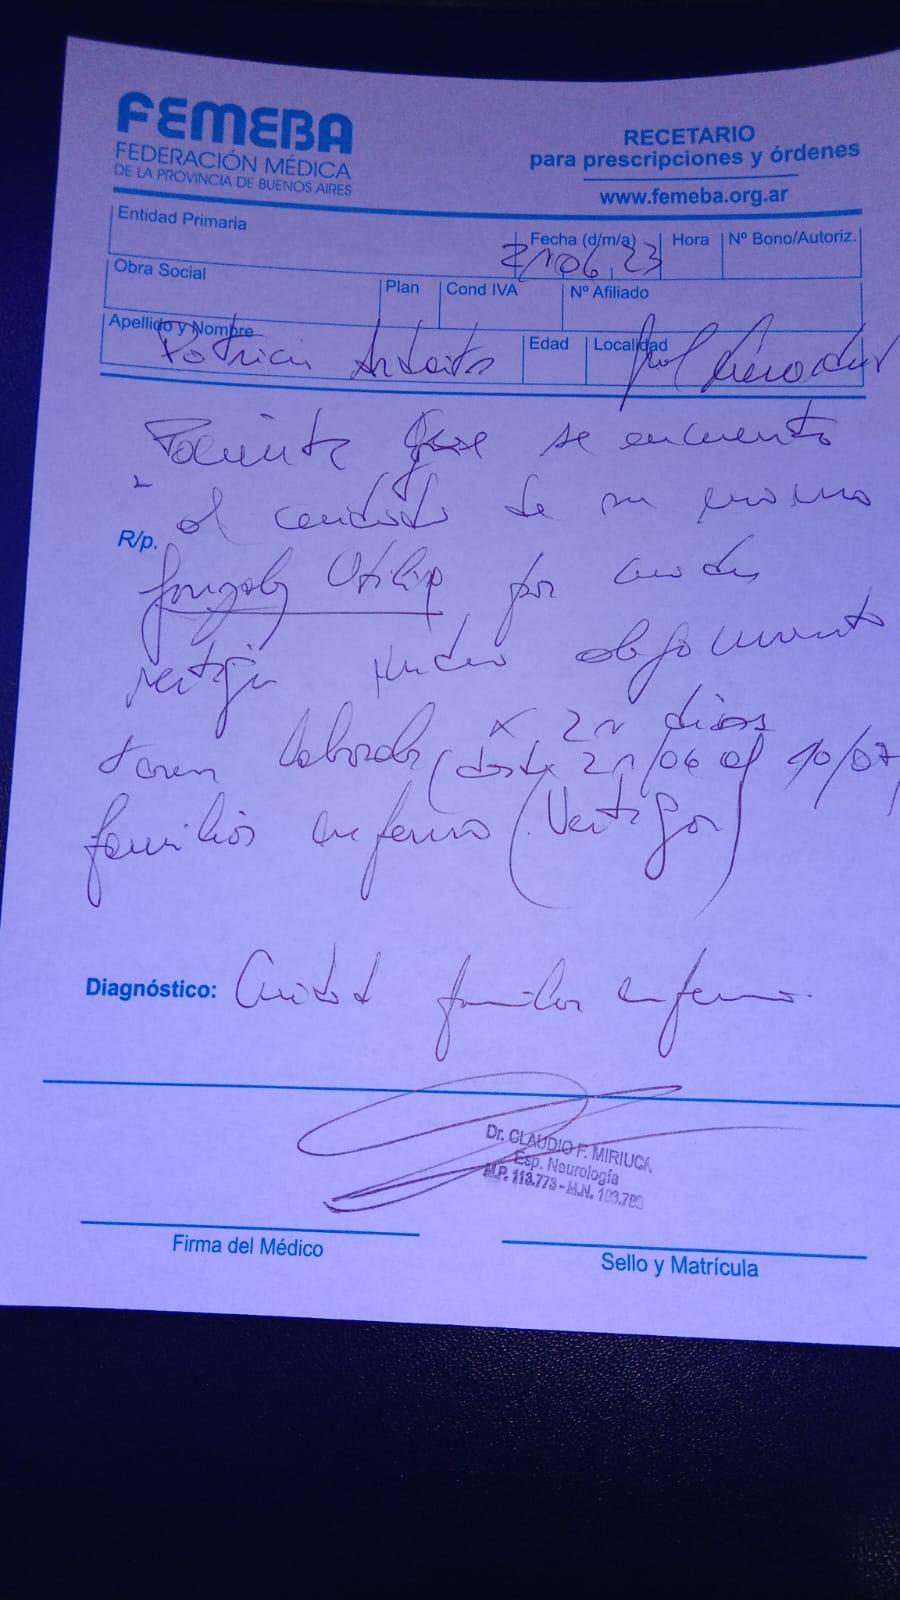 FEMEBA
FEDERACIÓN MÉDICA
DE LA PROVINCIA DE BUENOS AIRES
RECETARIO
para prescripciones y órdenes
www.femeba.org.ar
Entidad Primaria
Fecha (d/m/a) Hora Nº Bono/Autoriz.
21 06 23
Obra Social Plan Cond IVA Nº Afiliado
Apellido y Nombre Edad Localidad
Patricia
Paciente que se encuentra
al cuidado de su
R/p.
Gonzalez por
vertigo
laborales x 21 dias
(desde 21/06 al 10/07
familiar enfermo (Vertigo)
Diagnóstico: Cuidado familiar enfermo.
Dr. CLAUDIO F. MIRIUCA
Esp. Neurología
M.P. 113.773 - M.N.
Firma del Médico
Sello y Matrícula